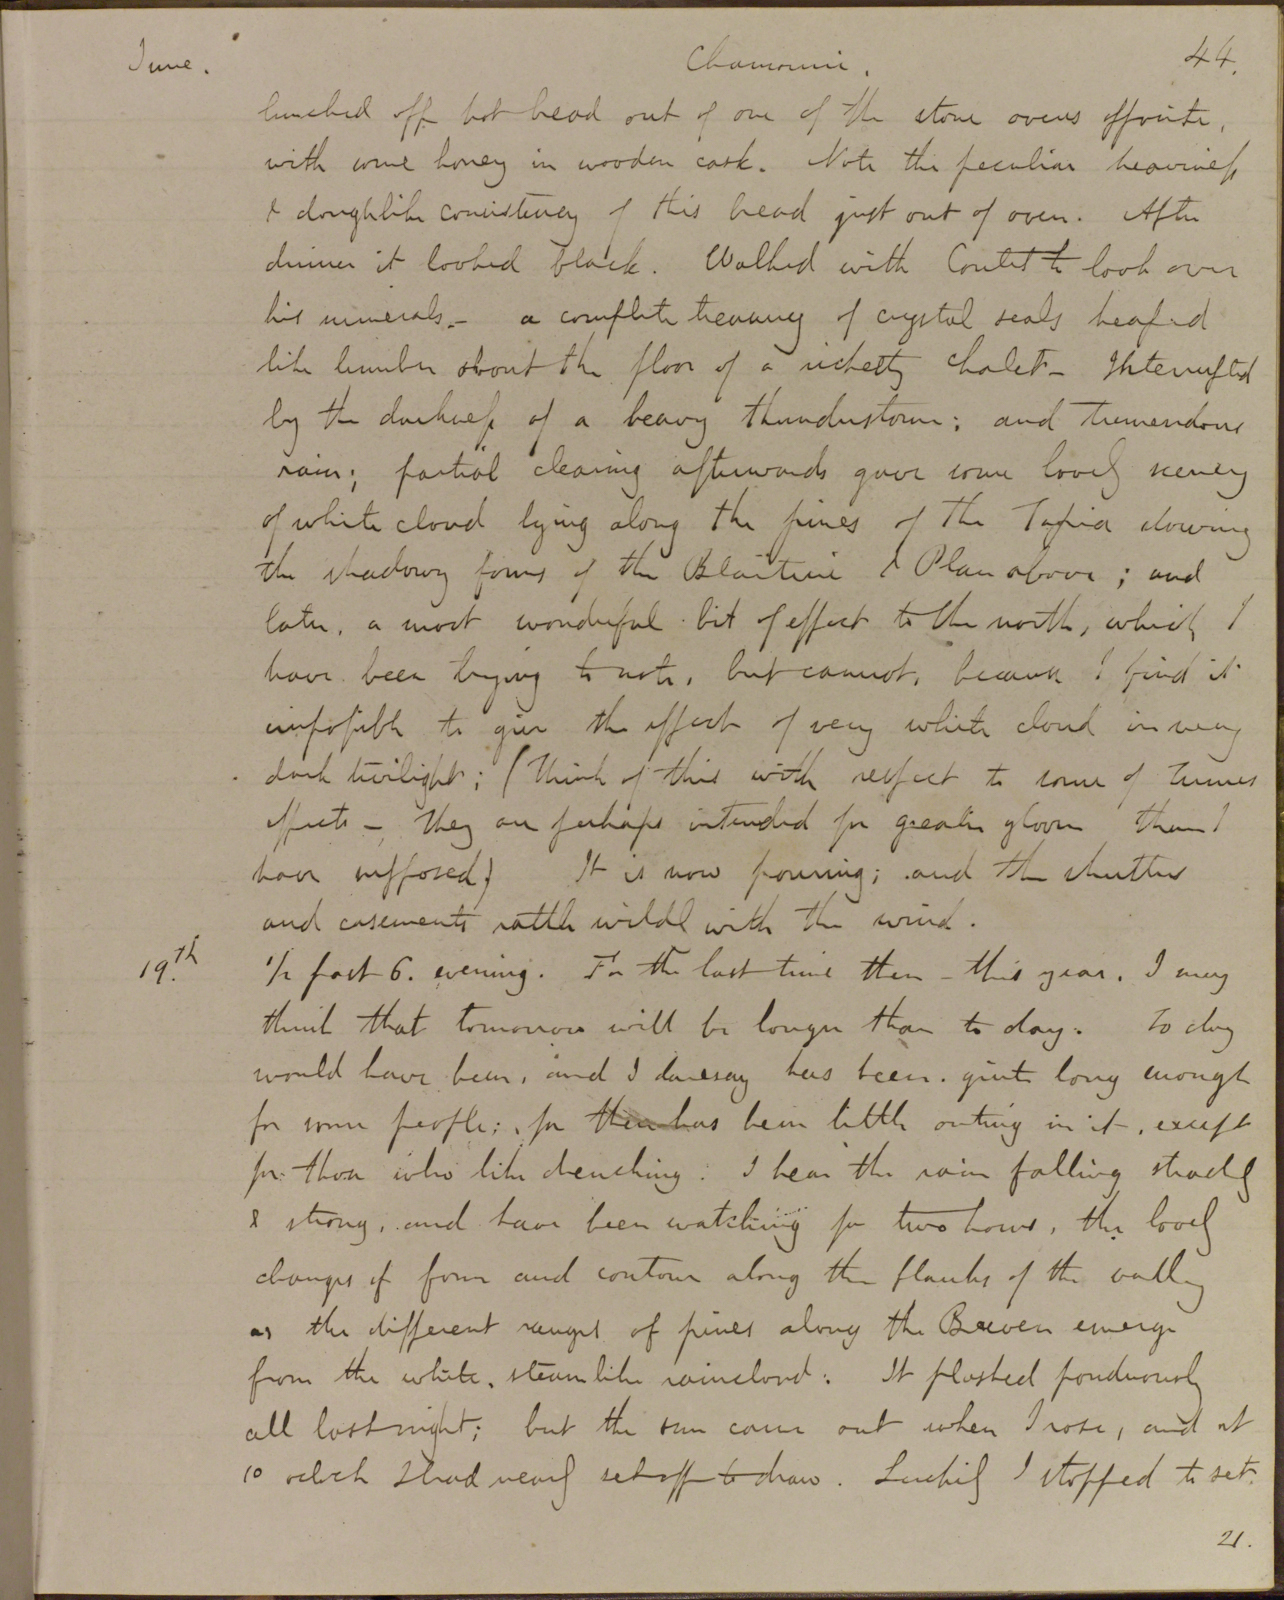 June. Chamouni. 44.
lunched off hot bread out of one of the stone ovens opposite,
with some honey in wooden cask. Note the peculiar heaviness
& doughlike consistency of this bread just out of oven. After
dinner it looked black. Walked with Coutet to look over
his minerals. - a complete treasury of crystal seals heaped
like lumber about the floor of a ricketty chalet - Interrupted
by the darkness of a heavy thunderstorm; and tremendous
rain; partial clearing afterwards gave some lovely scenery
of white cloud lying along the pines of the Tapia showing
the shadowy forms of the Blaitiere & Plan above; and
later, a most wonderful bit of effect to the north, which I
have been trying to note, but cannot, because I find it
impossible to give the effect of very white cloud in very
dark twilight; (Think of this with respect to some of Turners
effects - They are perhaps intended for greater gloom than I
have supposed) It is now pouring; and the shutters
and casements rattle wildl with the wind.
19.th 1/2 past 6. evening. For the last time then - this year, I may
think that tomorrow will be longer than to day. To day
would have been, and I daresay has been, quite long enough
for some people; for there has been little outing in it, except
for those who like drenching: I hear the rain falling steadily
& strong, and have been watching for two hours, the lovely
changes of form and contour along the flanks of the valley
as the different ranges of pines along the Breven emerge
from the white, steamlike raincloud: It plashed ponderously
all last night; but the sun came out when I rose, and at
10 oclock I had nearly set off to draw. Luckily I stopped to set
21.